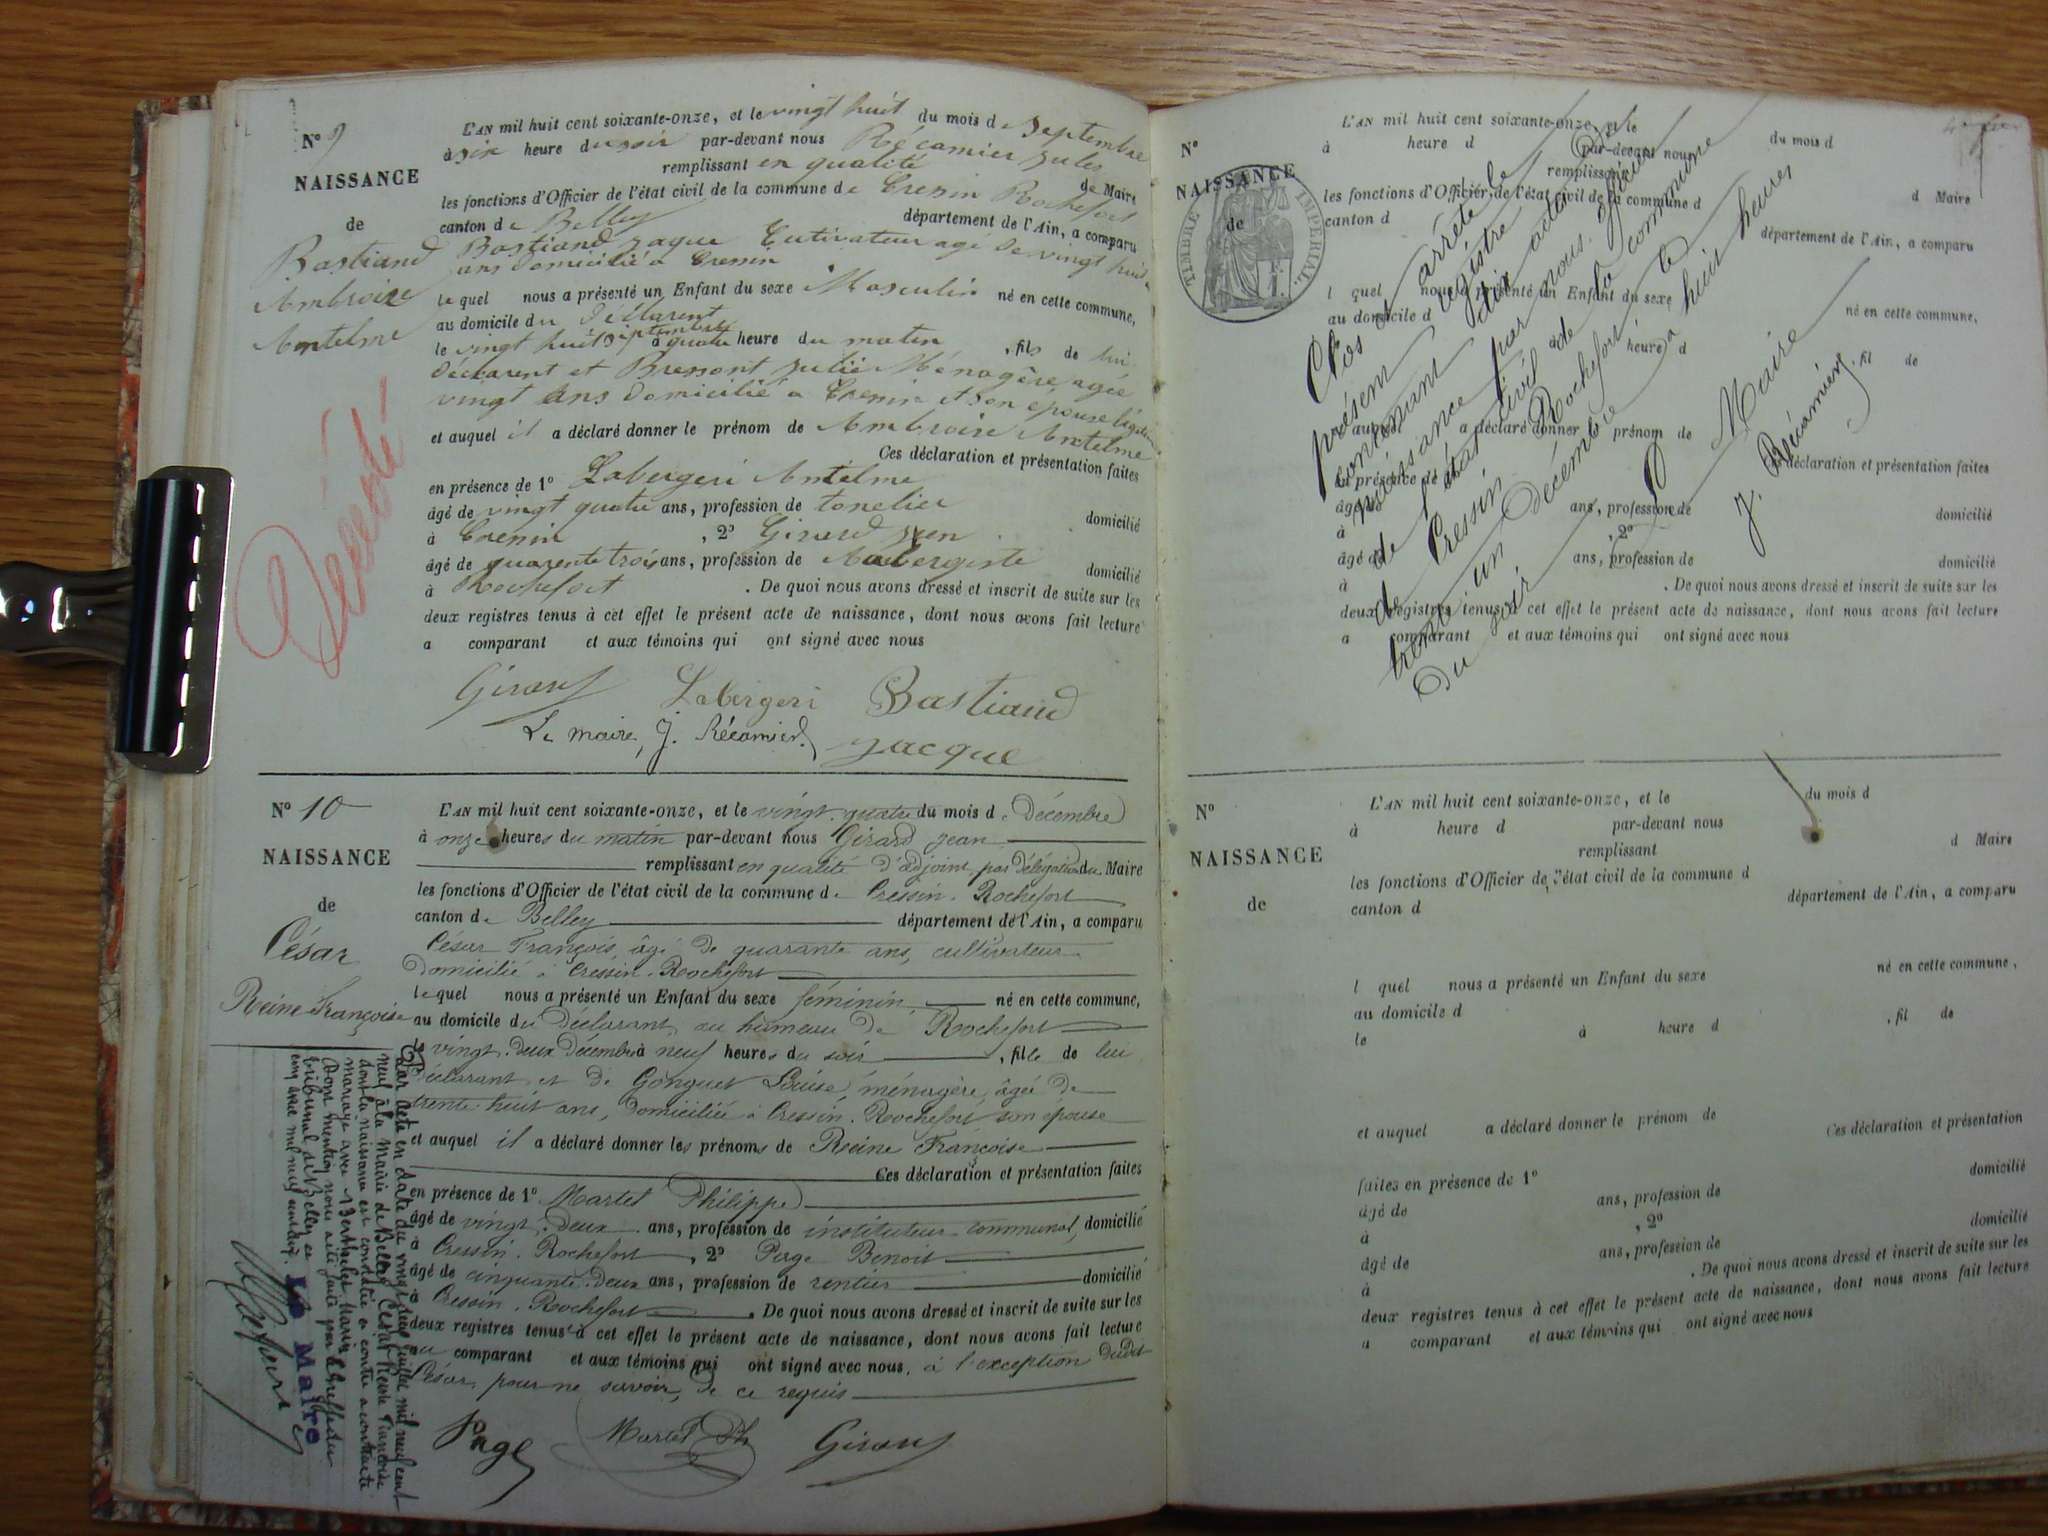 N° 9
NAISSANCE
de
Bastiand
Ambroise
Antelme
Décédé
L'AN mil huit cent soixante-onze, et le vingt huit du mois de Septembre
à six heure du soir par-devant nous Récamier Jules
remplissant en qualité de Maire
les fonctions d'Officier de l'état civil de la commune de Cresin Rochefort
canton de Belley département de l'Ain, a comparu
Bastiand Jaque Cutivateur agé de vingt huit
ans domicilié a Cresin
le quel nous a présenté un Enfant du sexe Masculin né en cette commune,
au domicile du déclarent
le vingt huit Septembre à quatre heure du matin , fils de lui
déclarent et Bressont Julie Ménagère agée
vingt ans domicilié a Cresin et son épouse légitime
et auquel il a déclaré donner le prénom de Ambroise Antelme
Ces déclaration et présentation faites
en présence de 1° Labergeri Antelme
âgé de vingt quatre ans, profession de tonelier domicilié
à Cresin , 2° Girard Jean
âgé de quarente trois ans, profession de Aubergiste domicilié
à Rochefort . De quoi nous avons dressé et inscrit de suite sur les
deux registres tenus à cet effet le présent acte de naissance, dont nous avons fait lecture
a comparant et aux témoins qui ont signé avec nous
Girard Labergeri Bastiand
Le maire, J. Récamier. Jacque
N° 10
NAISSANCE
de
César
Reine Françoise
L'AN mil huit cent soixante-onze, et le vingt-quatre du mois de Décembre
à onze heures du matin par-devant nous Girard Jean
remplissant en qualité d'adjoint par délégation du Maire
les fonctions d'Officier de l'état civil de la commune de Cressin-Rochefort
canton de Belley département de l'Ain, a comparu
César François, âgé de quarante ans, cultivateur
domicilié à Cressin-Rochefort
le quel nous a présenté un Enfant du sexe féminin, né en cette commune,
au domicile du déclarant, au hameau de Rochefort
le vingt-deux Décembre à neuf heures du soir , fille de lui
déclarant et de Gonguet Louise, ménagère, âgée de
trente-huit ans, domiciliée à Cressin-Rochefort son épouse
et auquel il a déclaré donner les prénoms de Reine Françoise
Ces déclaration et présentation faites
en présence de 1° Martel Philippe
âgé de vingt-deux ans, profession de instituteur communal, domicilié
à Cressin-Rochefort , 2° Page Benoit
âgé de cinquante-deux ans, profession de rentier domicilié
à Cressin-Rochefort . De quoi nous avons dressé et inscrit de suite sur les
deux registres tenus à cet effet le présent acte de naissance, dont nous avons fait lecture
au comparant et aux témoins qui ont signé avec nous, à l'exception dudit
César, pour ne savoir, de ce requis
Page Martel Ph Girard
Par acte en date du vingt juillet mil neuf cent
neuf à la Mairie de Belley César Reine Françoise
dont la naissance est constatée ci contre a contracté
mariage avec Berthelet Marie
Dont mention nous a été faite par le Greffier du
tribunal de Belley ce
mil neuf cent dix.
Le Maire
N°
NAISSANCE
de
TIMBRE IMPERIAL.
L'AN mil huit cent soixante-onze, et le du mois d
à heure d par-devant nous
remplissant d Maire
les fonctions d'Officier de l'état civil de la commune d
canton d département de l'Ain, a comparu
l quel nous a présenté un Enfant du sexe né en cette commune,
au domicile d
le à heure d , fil de
et auquel a déclaré donner le prénom de
Ces déclaration et présentation faites
en présence de 1°
âgé de ans, profession de domicilié
à , 2°
âgé de ans, profession de domicilié
à . De quoi nous avons dressé et inscrit de suite sur les
deux registres tenus à cet effet le présent acte de naissance, dont nous avons fait lecture
a comparant et aux témoins qui ont signé avec nous
Clos et arrêté le
présent registre
contenant dix actes de
naissance par nous, officier
de l'état civil de la commune
de Cressin-Rochefort le
trente un décembre à huit heures
du soir
Maire
J. Récamier.
N°
NAISSANCE
de
L'AN mil huit cent soixante-onze, et le du mois d
à heure d par-devant nous
remplissant d Maire
les fonctions d'Officier de l'état civil de la commune d
canton d département de l'Ain, a comparu
l quel nous a présenté un Enfant du sexe né en cette commune,
au domicile d
le à heure d , fil de
et auquel a déclaré donner le prénom de
Ces déclaration et présentation
faites en présence de 1° domicilié
âgé de ans, profession de
à , 2° domicilié
âgé de ans, profession de
à . De quoi nous avons dressé et inscrit de suite sur les
deux registres tenus à cet effet le présent acte de naissance, dont nous avons fait lecture
a comparant et aux témoins qui ont signé avec nous